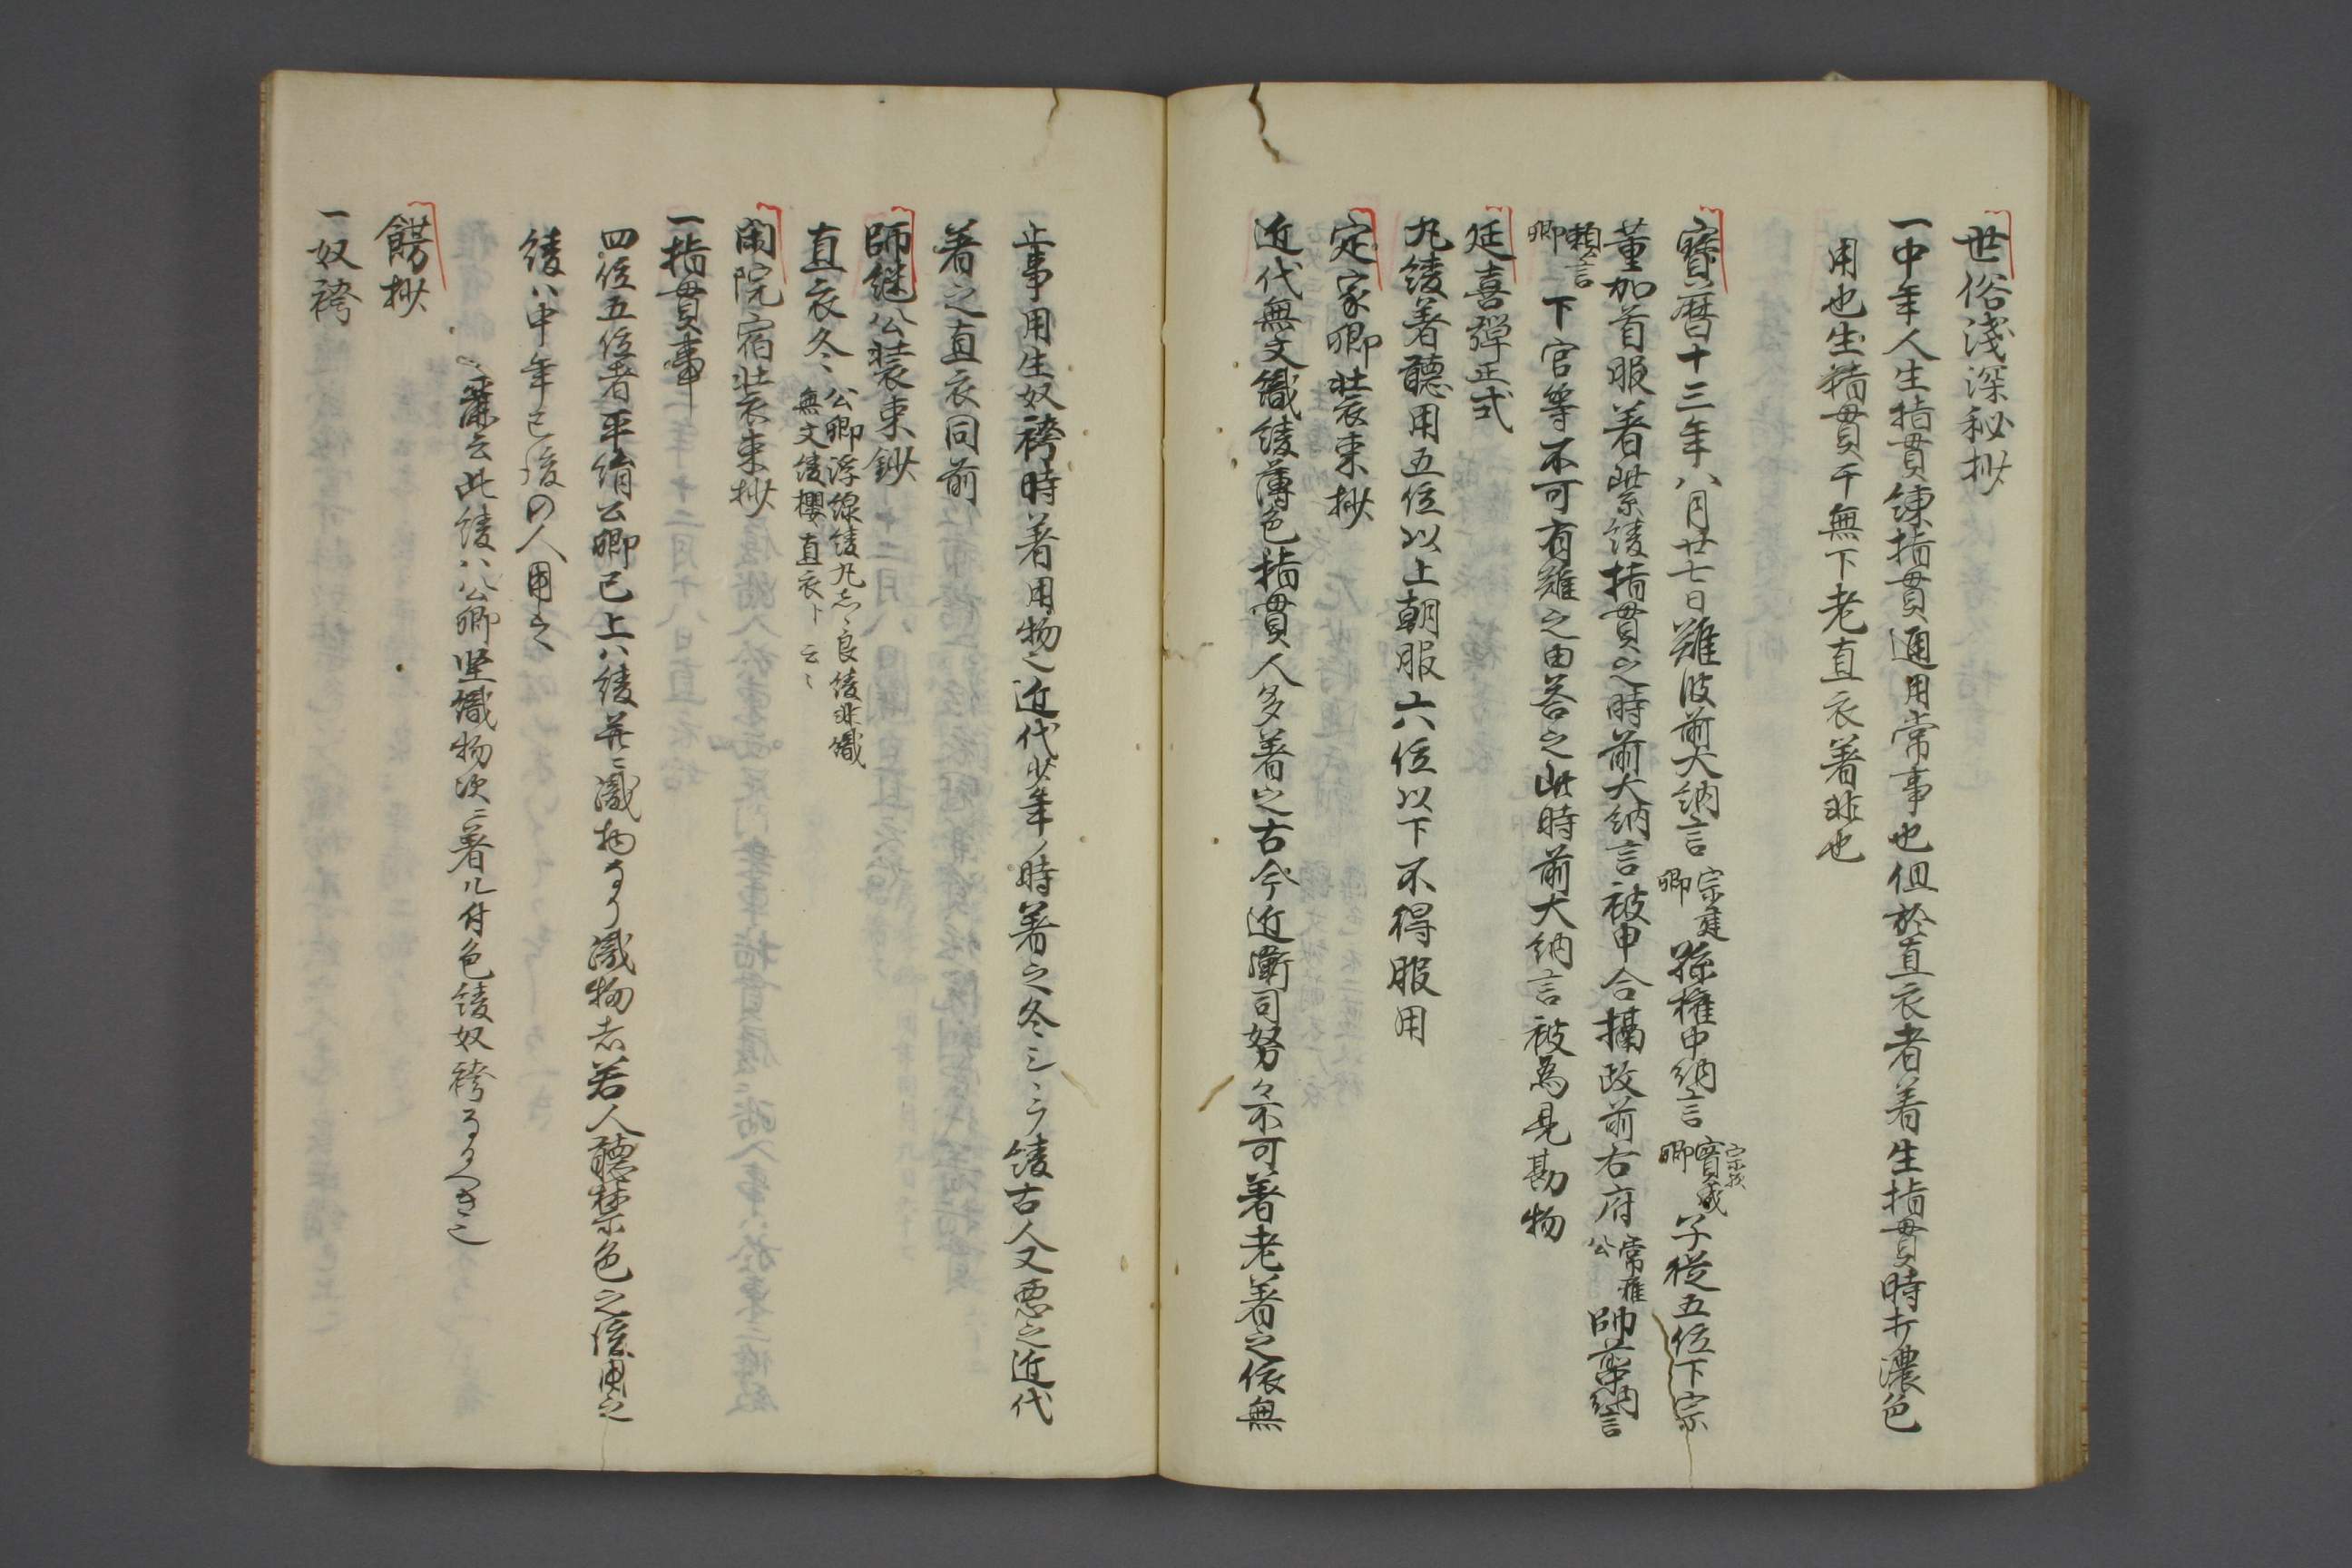 世俗浅深秘抄
一中年人生指貫練指貫通用常事也但於直衣者着生指貫時打濃色
用也生指貫干無下老直衣著非也
寶暦十三年八月廿七日難波前大納言宗建卿孫權中納言宗城卿子従五位下宗
董加首服着紫綾指貫之時前大納言被申合摂政前右府公帥薬納言
頼言卿下官等不可有難之由答之此時前大納言被為見勘物
延喜彈正式
凡綾著聽用五位以上朝服六位以下不得服用
定家卿装束抄
近代無文織綾薄色指貫人多著之古今近衛司努々不可著老著之依無
止事用生奴袴時著用物之近代少年ノ時著之冬シヽラ綾古人又悪之近代
着之直衣同前
師継公装束鈔
直衣冬ゝ公卿浮線綾丸志ゝ良綾非織
無文綾櫻直衣ト云々
閑院宿装束抄
一指貫事
四位五位者平絹公卿已上ハ綾并ニ織物なり織物者若人聽禁色之後用之
綾ハ中年已後の人用之
云此綾ハ公卿堅織物次ニ著ル付色綾奴袴なるへき
餝抄
一奴袴